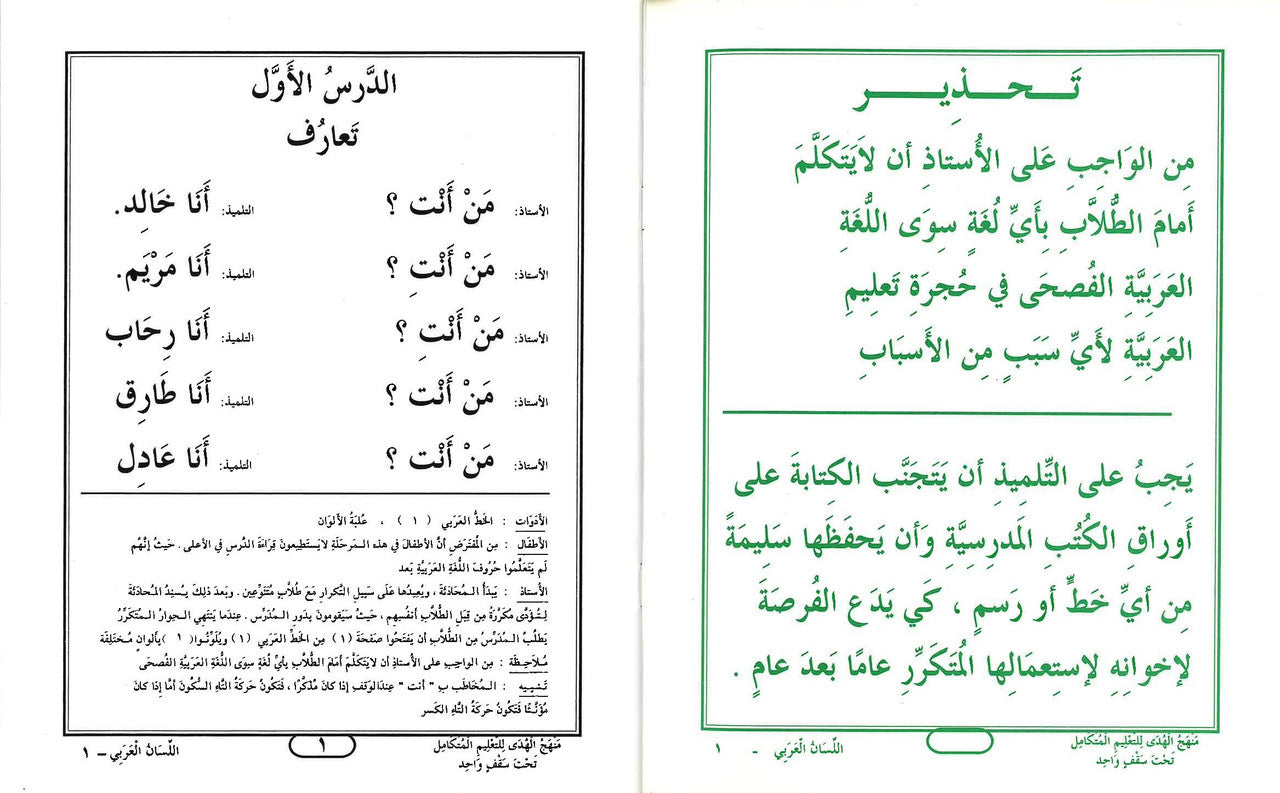 تَـــحـــذِيـــــر
مِن الوَاجِبِ عَلى الأُستاذِ أن لاَيَتَكَلَّمَ
أَمامَ الطُّلاَّبِ بِأَيِّ لُغَةٍ سِوَى اللُّغَةِ
العَرَبِيَّةِ الفُصحَى في حُجرَةِ تَعلِيمِ
العَرَبِيَّةِ لأَيِّ سَبَبٍ مِن الأَسبَابِ
يَجِبُ على التِّلمِيذِ أن يَتَجَنَّب الكِتابةَ على
أَوراقِ الكُتُبِ المَدرسِيَّةِ وَأن يَحفَظَها سَلِيمَةً
مِن أيِّ خَطٍّ أو رَسمٍ ، كَي يَدَع الفُرصَةَ
لإخوانِهِ لإستِعمَالِها المُتَكَرِّرِ عامًا بَعدَ عامٍ .
مَنهَجُ الْهُدَى لِلتَّعْلِيمِ الْمُتَكَامِلِ
تَحْتَ سَقْفٍ وَاحِد
اللِّسَانُ الْعَرَبِي - ١
الدَّرسُ الأَوَّل
تَعارُف
الأستاذ: مَنْ أَنْت ؟ التلميذ: أَنَا خَالِد.
الأستاذ: مَنْ أَنْتِ ؟ التلميذ: أَنَا مَرْيَم.
الأستاذ: مَنْ أَنْتِ ؟ التلميذ: أَنَا رِحَاب
الأستاذ: مَنْ أَنْت ؟ التلميذ: أَنَا طَارِق
الأستاذ: مَنْ أَنْت ؟ التلميذ: أَنَا عَادِل
الأَدَوَات : الخَطُّ العَرَبي ( ١ ) ، عُلبَةُ الأَلْوَان
الأطفَال : مِن المُفتَرَضِ أنَّ الأطفالَ في هذه المَرحَلَةِ لايَستَطِيعونَ قِرَاءَةَ الدَّرسِ في الأعلى . حَيثُ إنَّهُم
لَم يَتَعَلَّمُوا حُرُوفَ اللُّغَةِ العَرَبِيَّةِ بَعد
الأُستَاذ : يَبدَأُ المُحَادَثَةَ ، ويُعِيدُها عَلَى سَبِيلِ التَّكرارِ مَعَ طُلاَّبٍ مُتَنَوِّعِين . وبَعدَ ذلِكَ يُسنِدُ المُحادَثَةَ
لِتُؤدَّى مُكَرَّرَةً مِن قِبَلِ الطُّلاَّبِ أنفُسِهِم ، حَيثُ سَيَقومونَ بِدَورِ المُدَرِّس . عِندَما يَنتَهي الحِوارُ المُتَكَرِّرُ
يَطلُبُ المُدَرِّسُ مِن الطُّلاَّبِ أن يَفتَحُوا صَفحَةَ (١) مِن الخَطِّ العَرَبي (١) ويُلَوِّنُوا( ١ )بِألوانٍ مُختَلِفَة
مُلاَحِظَة : مِن الواجِبِ على الأُستاذِ أن لايَتَكَلَّمَ أمَامَ الطُّلاَّبِ بِأيِّ لُغَةٍ سِوَى اللُّغَةِ العَرَبِيَّةِ الفُصحَى
تَنبيه : المُخاطَب بِـ " أنت " عِندَالوَقفِ إذا كانَ مُذَكَّرًا ، فَتَكُونُ حَرَكَةُ التَّاءِ السُّكونَ أمَّا إذا كانَ
مُؤَنَّثًا فَتَكُونُ حَرَكَةُ التَّاءِ الكَسر
مَنهَجُ الْهُدَى لِلتَّعْلِيمِ الْمُتَكَامِل
تَحْتَ سَقْفٍ وَاحِد
١
اللِّسَانُ الْعَرَبِي – ١